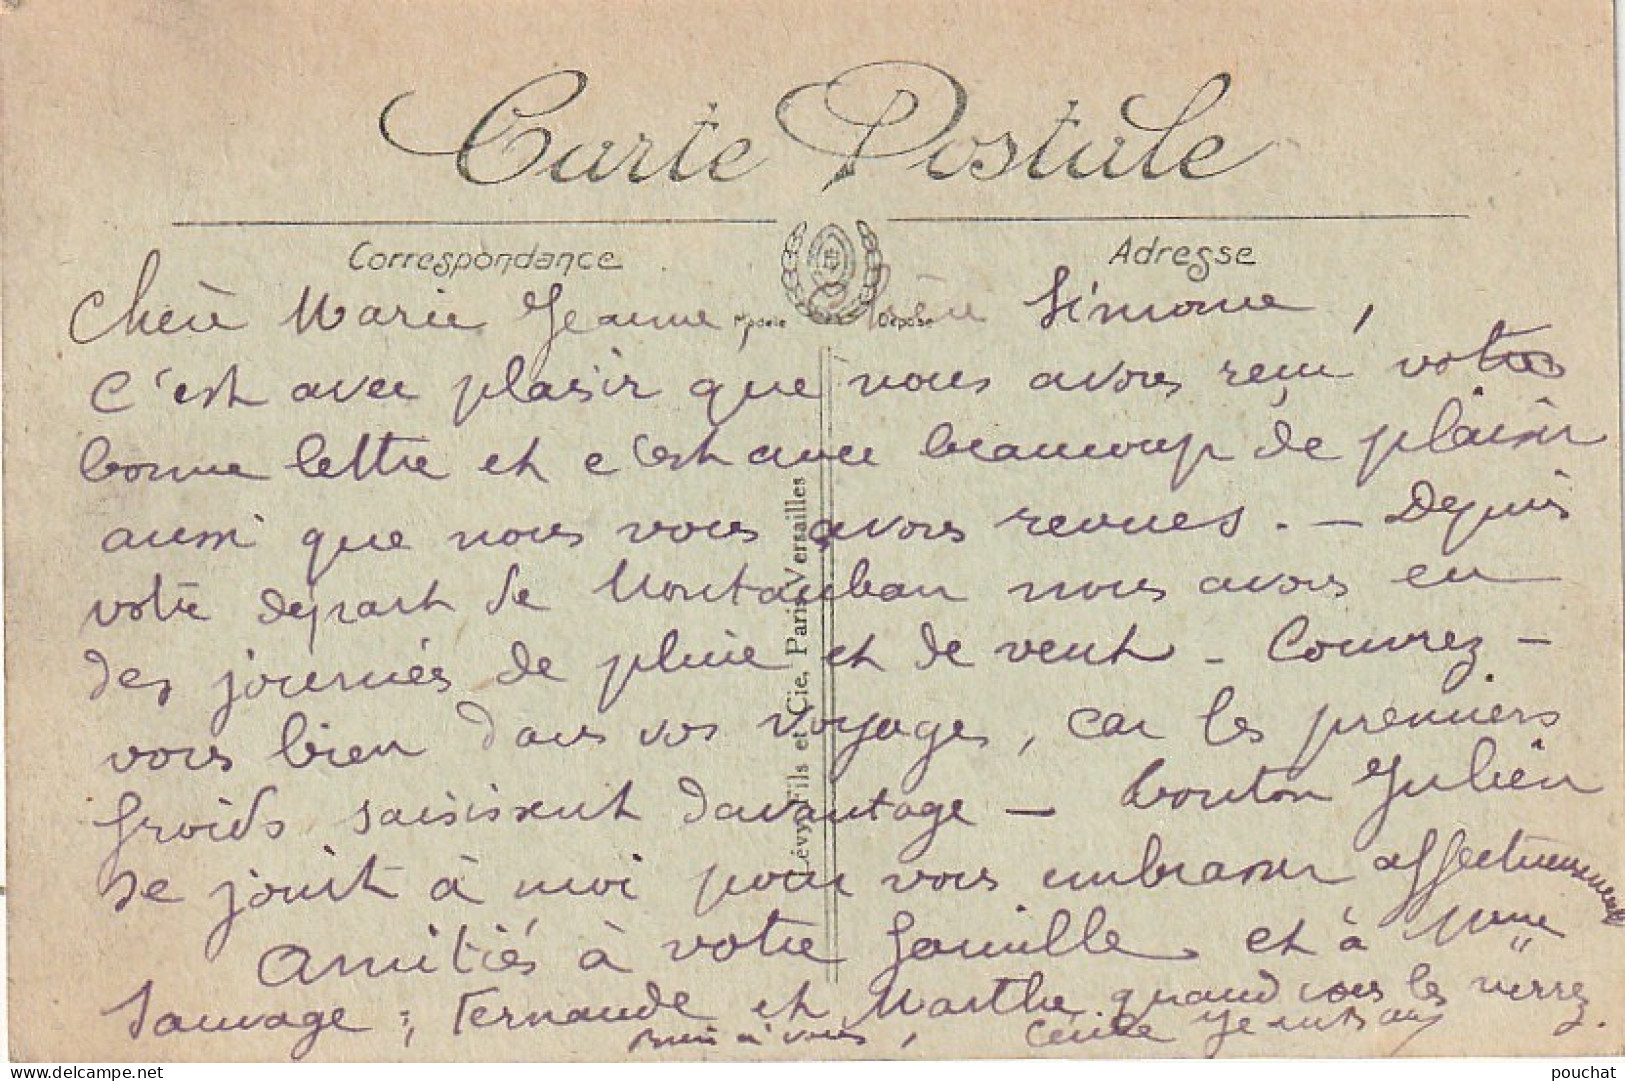 Carte Postale
Correspondance
Adresse
Chère Marie Jeanne, chère Simone,
Modèle Déposé
c'est avec plaisir que nous avons reçu votre
bonne lettre et c'est avec beaucoup de plaisir
aussi que nous vous avons revues. - Depuis
votre départ de Montauban nous avons eu
des journées de pluie et de vent - Couvrez -
vous bien dans vos voyages, car les premiers
froids saisissent davantage - Tonton Julien
se joint à moi pour vous embrasser affectueusement
Amitiés à votre famille et à Mme
Sauvage, Fernande et Marthe quand vous les verrez.
Bien à vous, Cécile
Lévy Fils et Cie, Paris-Versailles
delcampe.net
pouchat